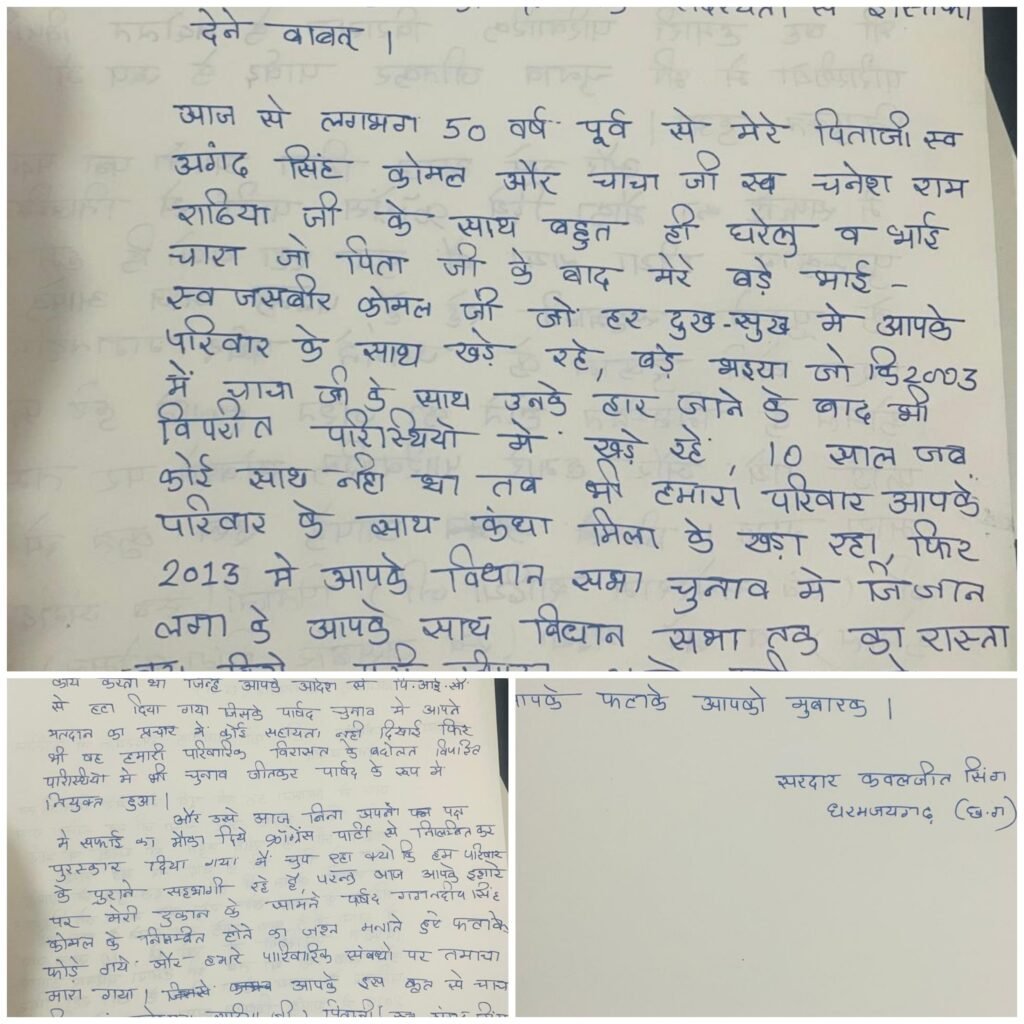 देने बाबत् ।
आज से लगभग 50 वर्ष पूर्व से मेरे पिताजी स्व
अगंद सिंह कोमल और चाचा जी स्व चनेश राम
राठिया जी के साथ बहुत ही घरेलु व भाई
चारा जो पिता जी के बाद मेरे बड़े भाई –
स्व जसबीर कोमल जी जो हर दुख-सुख मे आपके
परिवार के साथ खड़े रहे, बड़े भइया जो कि 2003
में चाचा जी के साथ उनके हार जाने के बाद भी
विपरीत परिस्थियो में खड़े रहे, 10 साल जब
कोई साथ नही था तब भी हमारा परिवार आपके
परिवार के साथ कंधा मिला के खड़ा रहा, फिर
2013 मे आपके विधान सभा चुनाव मे जि जान
लगा के आपके साथ विधान सभा तक का रास्ता
कार्य करता था जिन्हे आपके आदेश से पि.आई.सी.
से हटा दिया गया जिसके पार्षद चुनाव में आपने
मतदान का प्रचार में कोई सहायता नही दिखाई फिर
भी वह हमारी पारिवारिक विरासत के बदोलत
परिस्थियो मे भी चुनाव जीतकर पार्षद के रूप मे
नियुक्त हुआ।
और उसे आज बिना अपनी पक्ष
मे सफाई का मौका दिये कॉग्रेस पार्टी से निलंबित कर
पुरस्कार दिया गया मैं चुप रहा क्यो कि हम परिवार
के पुराने सहभागी रहे है, परन्तु आज आपके इशारे
पर मेरी दुकान के सामने पार्षद गगनदीप सिंह
कोमल के निलम्बित होने का जश्न मनाते हुऐ फटाके
फोड़े गये और हमारे पारिवारिक संबधो पर तमाचा
मारा गया। जिससे आपके इस कृत से चाचा
आपके फटाके आपको मुबारक ।
सरदार कवलजीत सिंग
धरमजयगढ़ (छ.ग)